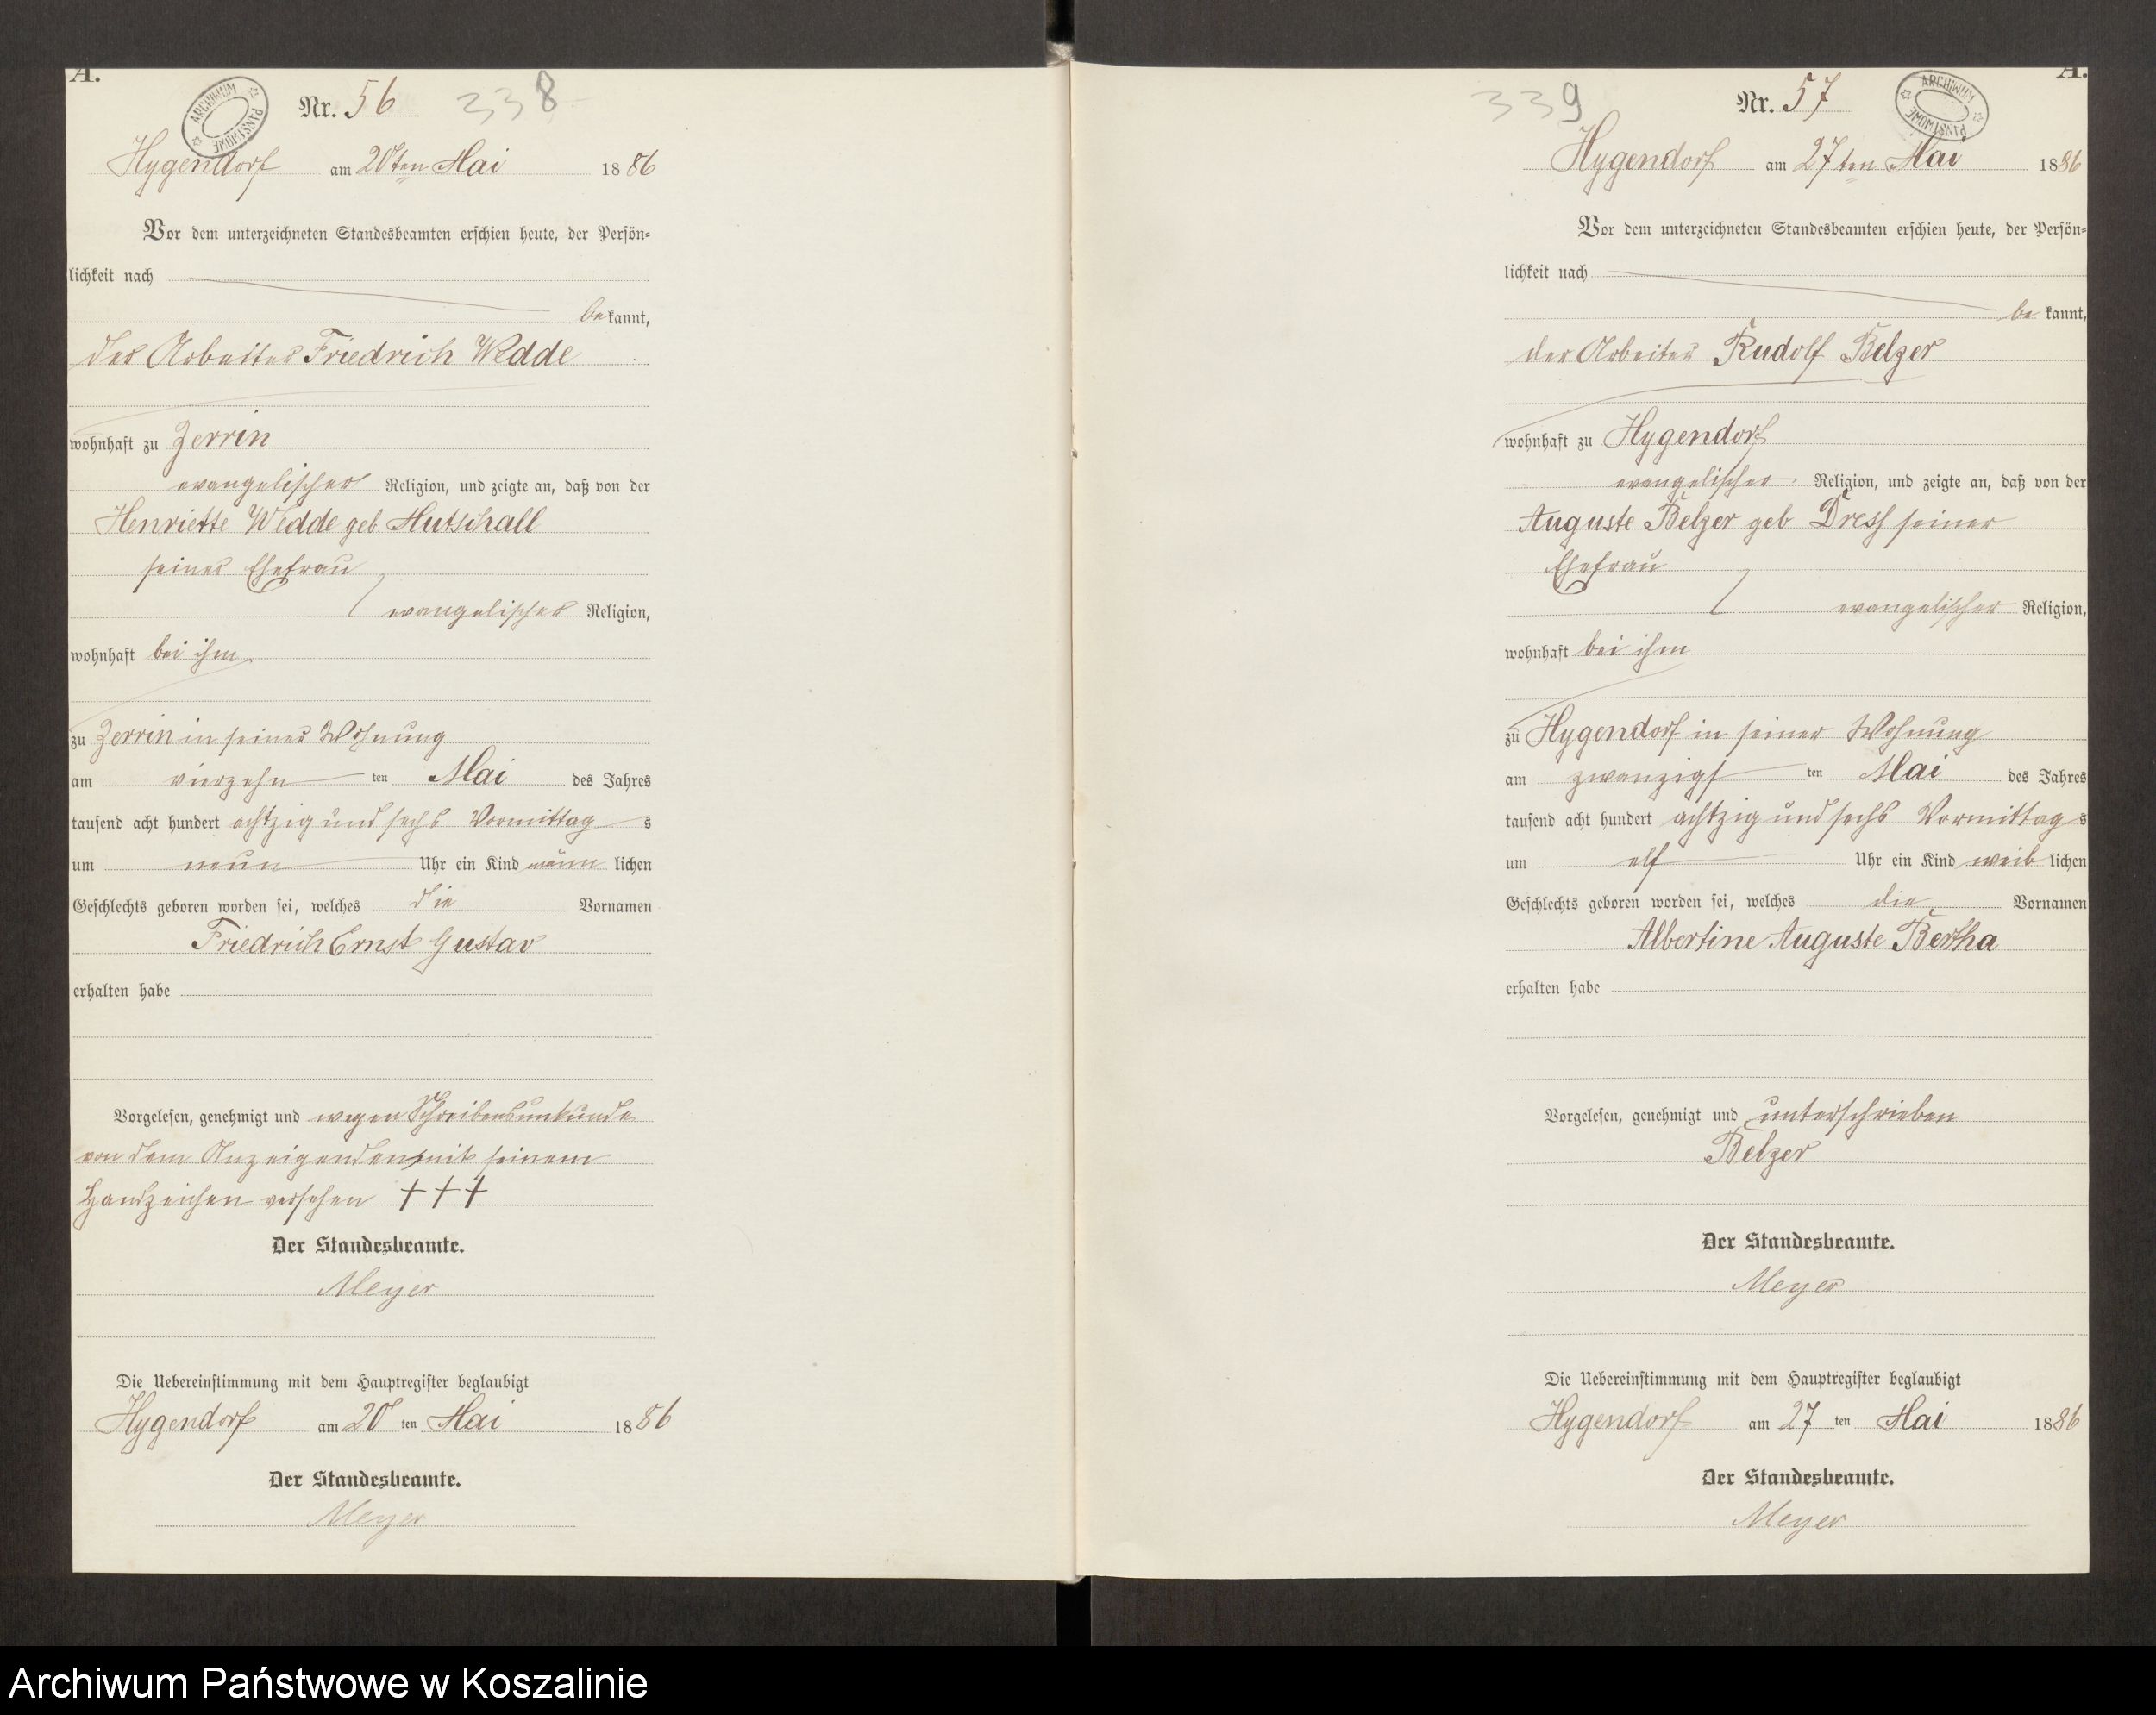 A.
ARCHIWUM PAŃSTWOWE
Nr. 56 338
Hygendorf am 20ten Mai 1886
Vor dem unterzeichneten Standesbeamten erschien heute, der Persön-
lichkeit nach
bekannt,
der Arbeiter Friedrich Wedde
wohnhaft zu Zerrin
evangelischer Religion, und zeigte an, daß von der
Henriette Wedde geb Hutschall
seiner Ehefrau
evangelischer Religion,
wohnhaft bei ihm
zu Zerrin in seiner Wohnung
am vierzehn ten Mai des Jahres
tausend acht hundert achtzig und sechs Vormittag s
um neun Uhr ein Kind männ lichen
Geschlechts geboren worden sei, welches die Vornamen
Friedrich Ernst Gustav
erhalten habe
Vorgelesen, genehmigt und wegen Schreibensunkunde
von dem Anzeigenden mit seinem
Handzeichen versehen +++
Der Standesbeamte.
Meyer
Die Uebereinstimmung mit dem Hauptregister beglaubigt
Hygendorf am 20 ten Mai 1886
Der Standesbeamte.
Meyer
A.
ARCHIWUM PAŃSTWOWE
339 Nr. 57
Hygendorf am 27ten Mai 1886
Vor dem unterzeichneten Standesbeamten erschien heute, der Persön-
lichkeit nach
be kannt,
der Arbeiter Rudolf Belzer
wohnhaft zu Hygendorf
evangelischer Religion, und zeigte an, daß von der
Auguste Belzer geb Dress seiner
Ehefrau
evangelischer Religion,
wohnhaft bei ihm
zu Hygendorf in seiner Wohnung
am zwanzigs ten Mai des Jahres
tausend acht hundert achtzig und sechs Vormittag s
um elf Uhr ein Kind weib lichen
Geschlechts geboren worden sei, welches die Vornamen
Albertine Auguste Bertha
erhalten habe
Vorgelesen, genehmigt und unterschrieben
Belzer
Der Standesbeamte.
Meyer
Die Uebereinstimmung mit dem Hauptregister beglaubigt
Hygendorf am 27 ten Mai 1886
Der Standesbeamte.
Meyer
Archiwum Państwowe w Koszalinie